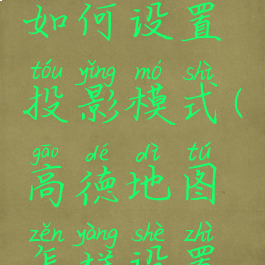 如何设置
tóu yǐng mó shì
投影模式(
gāo dé dì tú
高德地图
zěn yàng shè zhì
怎样设置